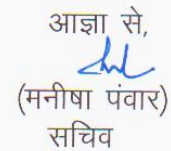 आज्ञा से,
(मनीषा पंवार)
सचिव